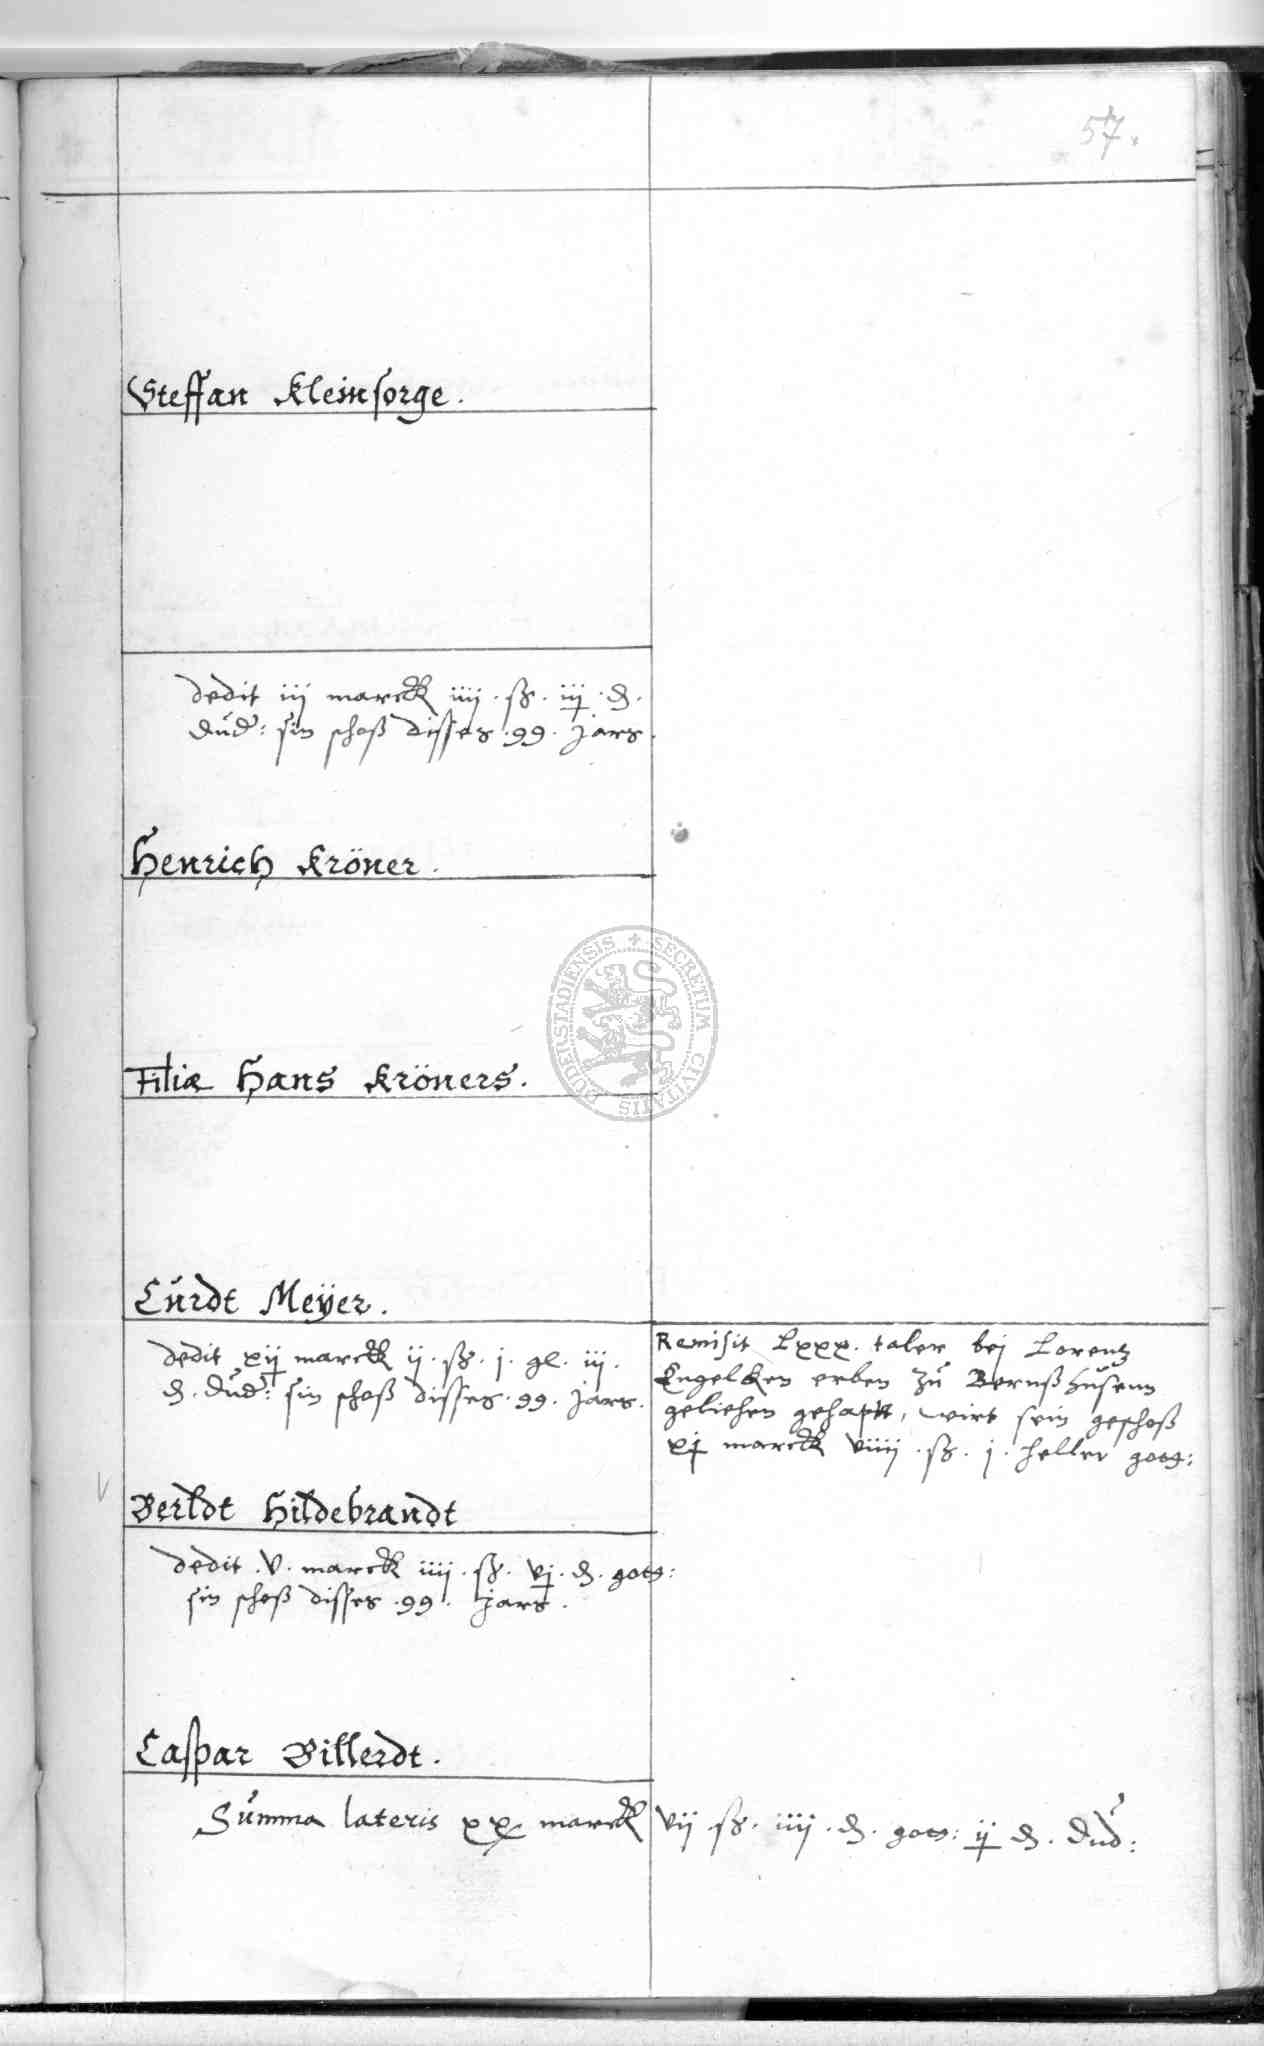 57.
Steffan Kleinsorge.
dedit iij marck iiij. ß. iij. d.
Dud: sin schoß disses .99. jars.
Henrich Kröner.
Filiæ Hans Kröners.
DUDERSTADIENSIS + SECRETUM CIVITATIS
Curdt Meÿer.
dedit xij marck ij. ß. j. gl. iij.
d. Dud: sin schoß disses .99. jars.
Remisit Lxxx. taler bej Lorentz
Engelken erben zu Bernßhusenn
geliehen gehapt, wirt sein geschoß
xj marck viiij. ß. j. heller gotg:
Berldt Hildebrandt
dedit .v. marck iiij. ß. vj. d. gotg:
sin schoß disses .99. jars.
Caspar Billerdt.
Summa lateris xx marck vij ß. iiij. d. gotg: ij d. Dud: